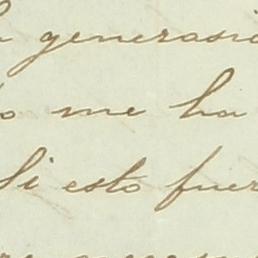 generasio
me ha
Si esto fuer